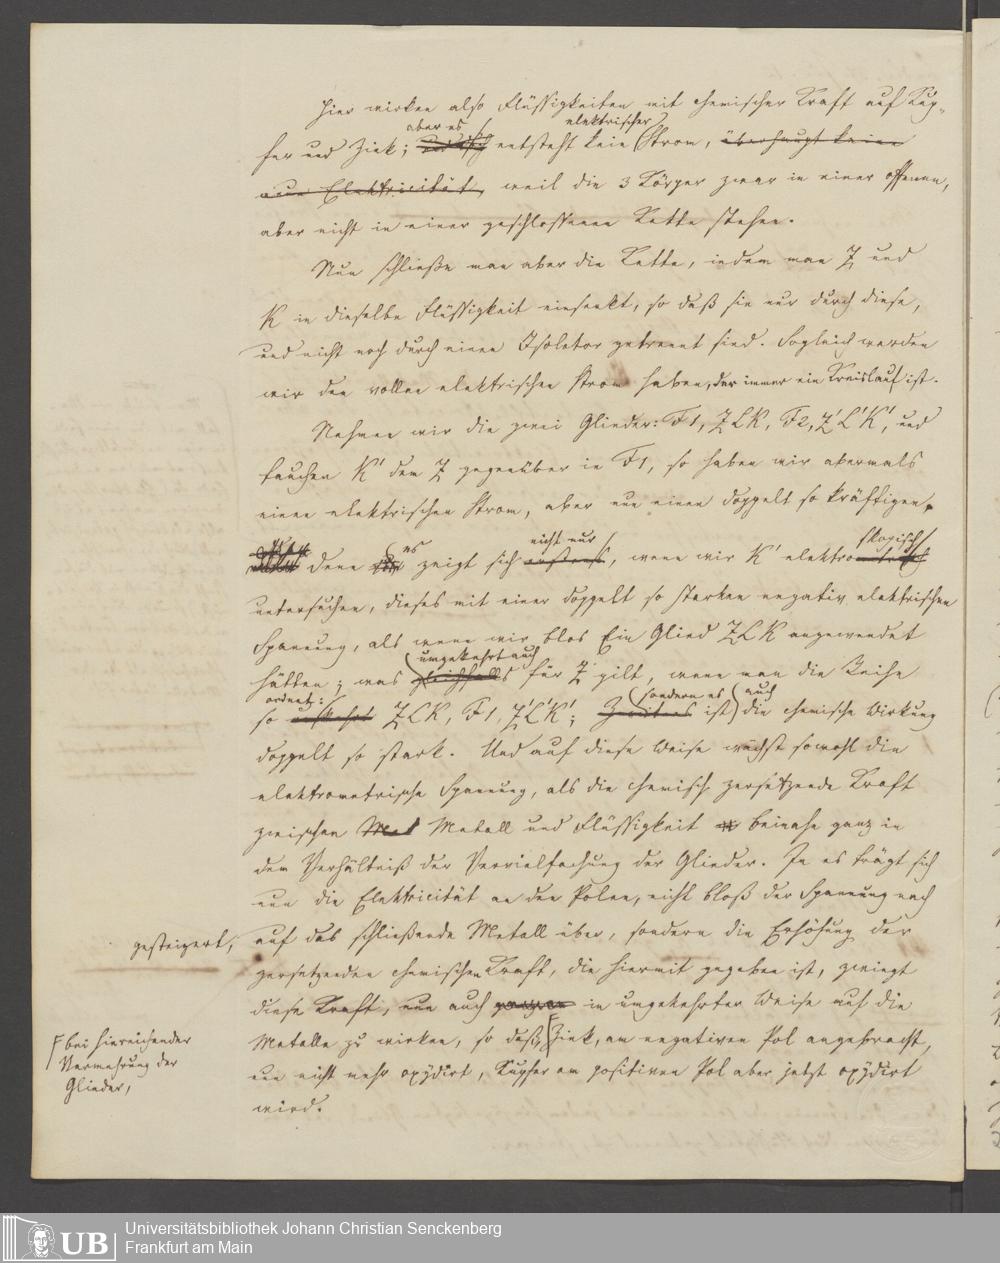 Hier wirken also Flüssigkeiten mit chemischer Kraft auf Kup-
aber es elektrischer
fer und Zink; entsteht kein Strom, überhaupt keine
neue Elektricität, weil die 3 Körper zwar in einer offenen,
aber nicht in einer geschlossenen Kette stehen.
Nun schließe man aber die Kette, indem man Z und
K in dieselbe Flüssigkeit einsenkt, so daß sie nur durch diese,
und nicht noch durch einen Isolator getrennt sind. Sogleich werden
wir den vollen elektrischen Strom haben, der immer ein Kreislauf ist.
Nehmen wir die zwei Glieder: F1, ZLK, F2, Z'L'K', und
tauchen K' dem Z gegenüber in F1, so haben wir abermals
einen elektrischen Strom, aber nun einen doppelt so kräftigen,
es nicht nur skopisch
denn zeigt sich erstens, wenn wir K' elektrometrisch
untersuchen, dieses mit einer doppelt so starken negativ elektrischen
Spannung, als wenn wir blos Ein Glied ZLK angewendet
umgekehrt auch
hätten; was gleichfalls für Z gilt, wenn man die Reihe
ordnet: sondern es auch
so ZLK, F1, Z'L'K'; Zweitens ist die chemische Wirkung
doppelt so stark. Und auf diese Weise wächst sowohl die
elektrometrische Spannung, als die chemisch zersetzende Kraft
zwischen Met Metall und Flüssigkeit beinahe ganz in
dem Verhältniß der Vervielfachung der Glieder. Ja es trägt sich
nun die Elektricität an den Polen, nicht bloß der Spannung nach
gesteigert, auf das schließende Metall über, sondern die Erhöhung der
zersetzenden chemischen Kraft, die hiermit gegeben ist, zwingt
diese Kraft, nun auch in umgekehrter Weise auf die
Metalle zu wirken, so daß, Zink, am negativen Pol angebracht,
bei hinreichender
Vermehrung der
Glieder,
nun nicht mehr oxÿdirt, Kupfer am positiven Pol aber jetzt oxÿdirt
wird.
UB
Universitätsbibliothek Johann Christian Senckenberg
Frankfurt am Main